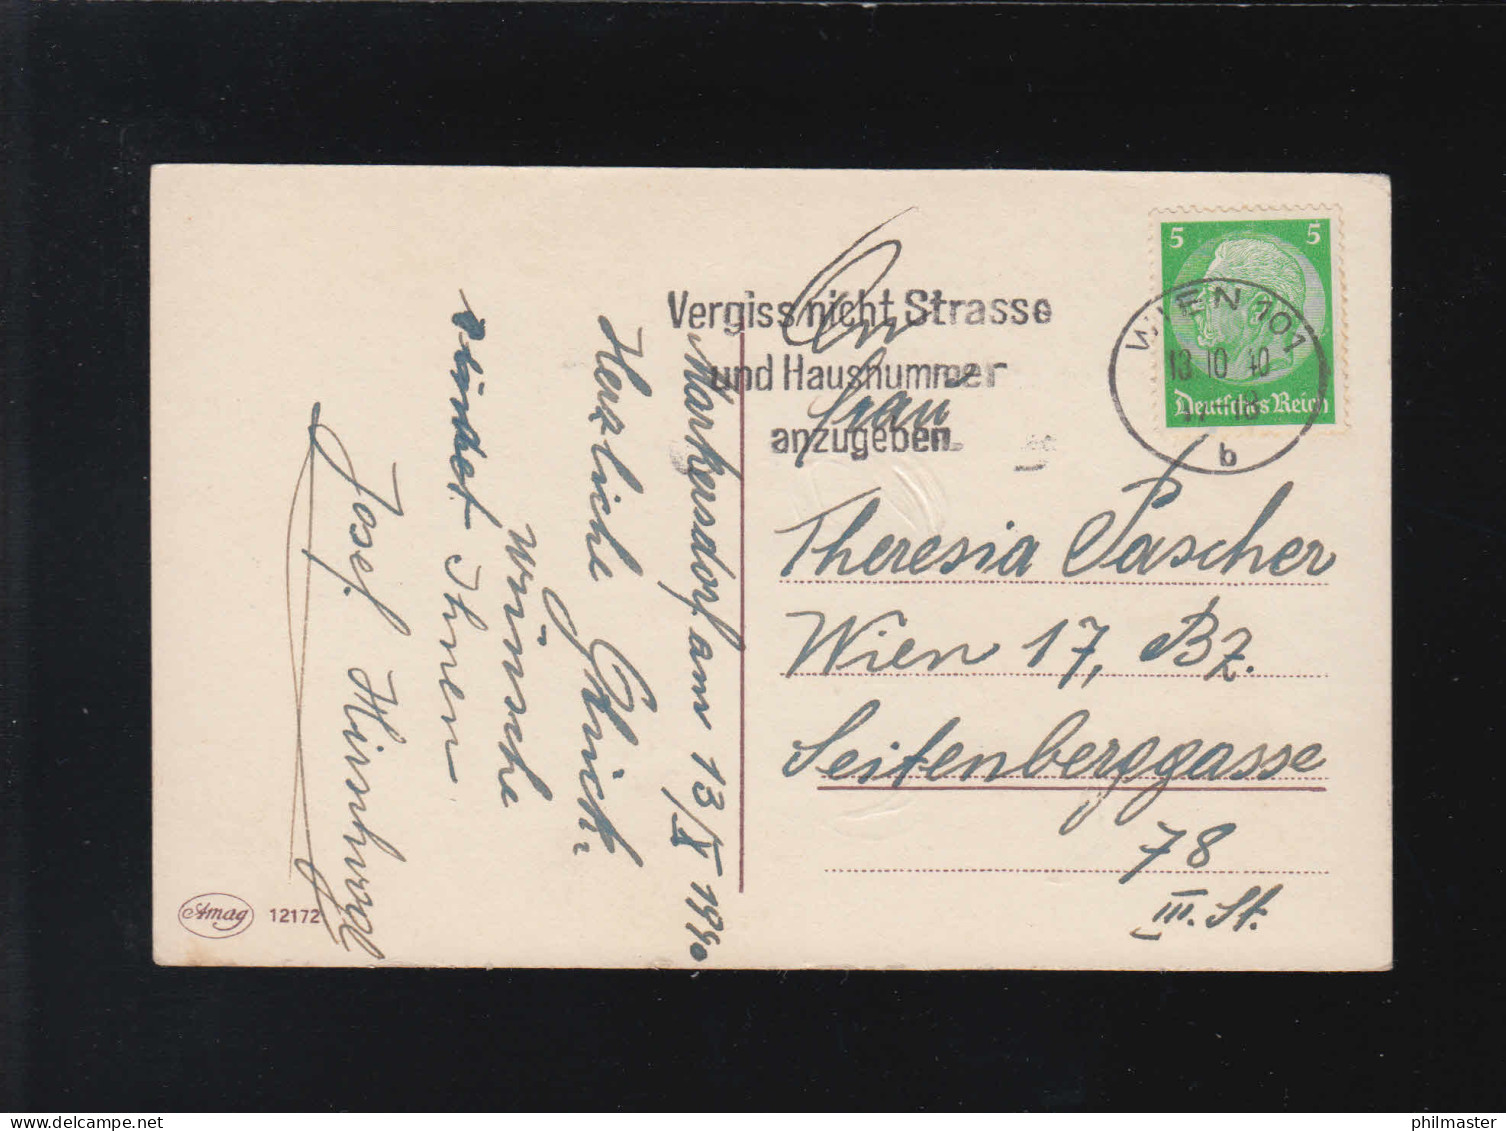 Markersdorf am 13/X 1940
Herzliche Glück-
wünsche
sindet Ihnen
Josef
Amag 12172
Vergiss nicht Strasse
und Hausnummer
anzugeben
5 5
Deutsches Reich
WIEN 101
13 10 40
18
b
An
Frau
Theresia Pascher
Wien 17, Bz.
Seitenberggasse
78
III. St.
delcampe.net
philmaster